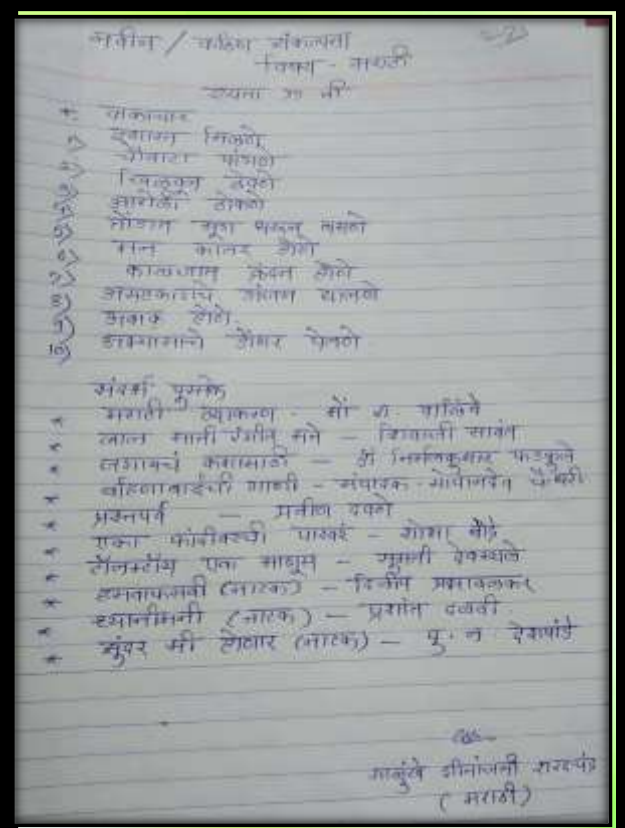 नवीन / कठिण संकल्पना
विषय - मराठी
इयत्ता
* वाकप्रचार
1) इशारत मिळणे
2) चौवाटा पांगणे
3) खिळवून ठेवणे
4) आरोळी ठोकणे
5) तोंडात मूग धरून बसणे
6) मन कातर होणे
7) काळजात क्रंदन होणे
8) डोळ्यात अंजन घालणे
9) अवाक होणे
10) अपमानाचे डोंगर पेलणे
संदर्भ पुस्तके
* मराठी व्याकरण - मो रा. वाळिंबे
* लाल माती रंगीत मने - शिवाजी सावंत
* जगायचं कशासाठी - डॉ निर्मलकुमार फडकुले
* बहिणाबाईंची गाणी - संपादक - गोपाळदेव चौधरी
* प्रश्नपर्व - प्रवीण दवणे
* एका फांदीवरची पाखरं - शोभा बोंद्रे
* टॉलस्टॉय एक माणूस - सुमती देवस्थळे
* हसवाफसवी (नाटक) - दिलीप प्रभावळकर
* ध्यानीमनी (नाटक) - प्रशांत दळवी
* सुंदर मी होणार (नाटक) - पु. ल देशपांडे
साळुंखे गीतांजली शरदचंद्र
( मराठी )